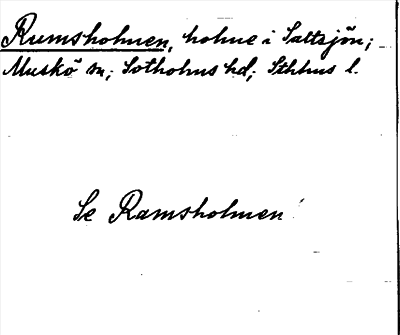 Rumsholmen, holme i Saltsjön;
Muskö sn; Sotholms hd; Sthlms l.
Se Ramsholmen!